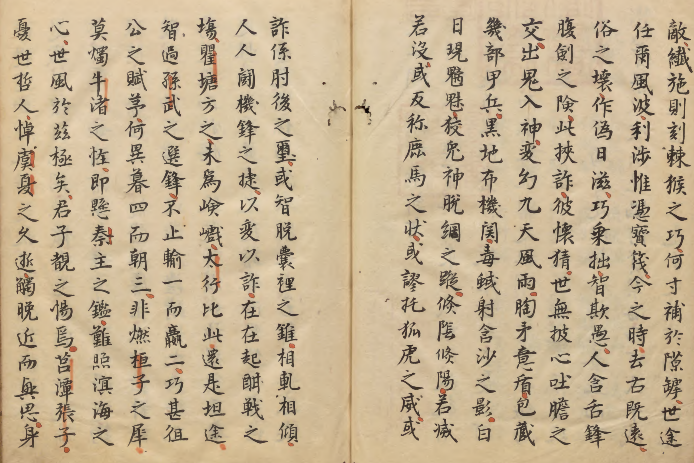 敵纖施則刻棘猴之巧何寸補於隙罅世途
任爾風波利涉惟憑寶筏今之時去古既遠
俗之壞作偽日滋巧乘拙智欺愚人含舌鋒
腹劍之險此挾詐彼懷猜世無披心吐膽之
交出鬼入神變幻九天風雨胸矛意盾包藏
幾部甲兵黑地布機関毒蜮射含沙之影白
日現魑魅狡兔神脫網之蹤倐陰倐陽若滅
若沒或反称鹿馬之狀或謬托狐虎之威或
詐係肘後之璽或智脫囊裡之錐相軋相傾
人人閗機鋒之捷以変以詐在在起酣戰之
塲瞿塘方之未為嶮巇太行比此還是坦途
智過孫武之選鋒不止輸一而贏二巧甚狙
公之賦芧何異暮四而朝三非燃桓子之犀
莫燭牛渚之恠即懸秦主之鑑難照溟海之
心世風於玆極矣君子觀之惕焉莒潭張子
憂世哲人悼虞身之久逝觴晚近而無思身